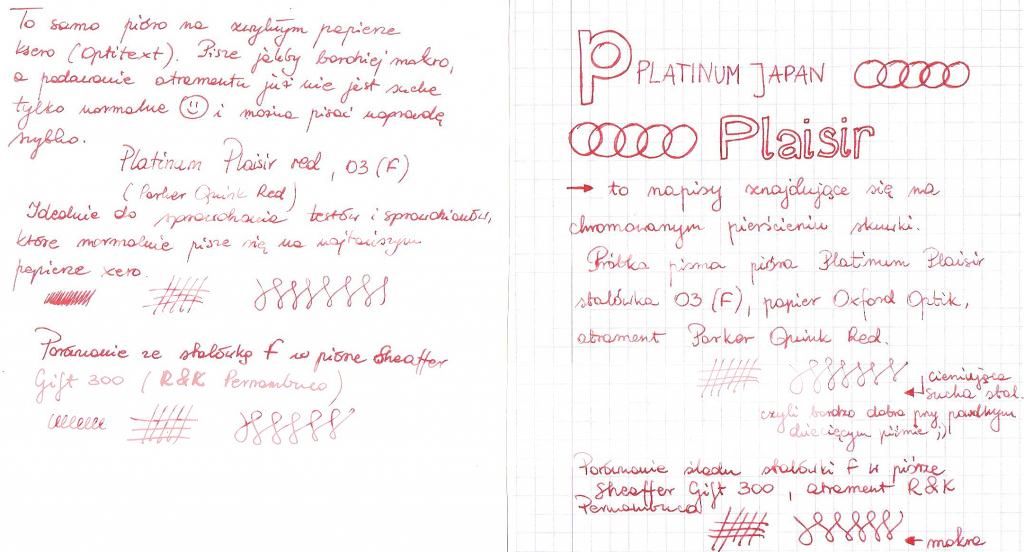 To samo pióro na zwykłym papierze
ksero (Optitext). Pisze jakby bardziej mokro,
a podawanie atramentu już nie jest suche
tylko normalne i można pisać naprawdę
szybko.
Platinum Plaisir red, 03 (F)
(Parker Quink Red)
Idealnie do sprawdzania testów i sprawdzianów,
które normalnie pisze się na najtańszym
papierze xero.
Porównanie ze stalówką F w piórze Sheaffer
Gift 300 (R&K Pernambuco)
P PLATINUM JAPAN
Plaisir
→ to napisy znajdujące się na
chromowanym pierścieniu skuwki.
Próbka pisma pióra Platinum Plaisir
stalówka 03 (F), papier Oxford Optik,
atrament Parker Quink Red.
cieniująca
sucha stal.
czyli bardzo dobra przy powolnym
dziecięcym piśmie ;)
Porównanie śladu stalówki F w piórze
Sheaffer Gift 300, atrament R&K
Pernambuco
mokra